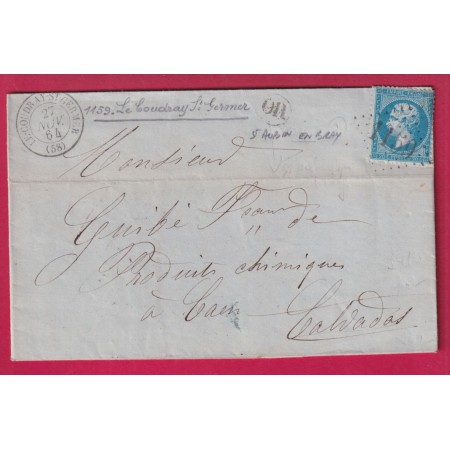 LE COUDRAY ST GERMER
27
NOV.
64
(58)
1159. Le Coudray St Germer
OR
St Aubin en Bray
EMPIRE FRANC
Monsieur
Guibé Fran de
Produits chimiques
à Caen
Calvados